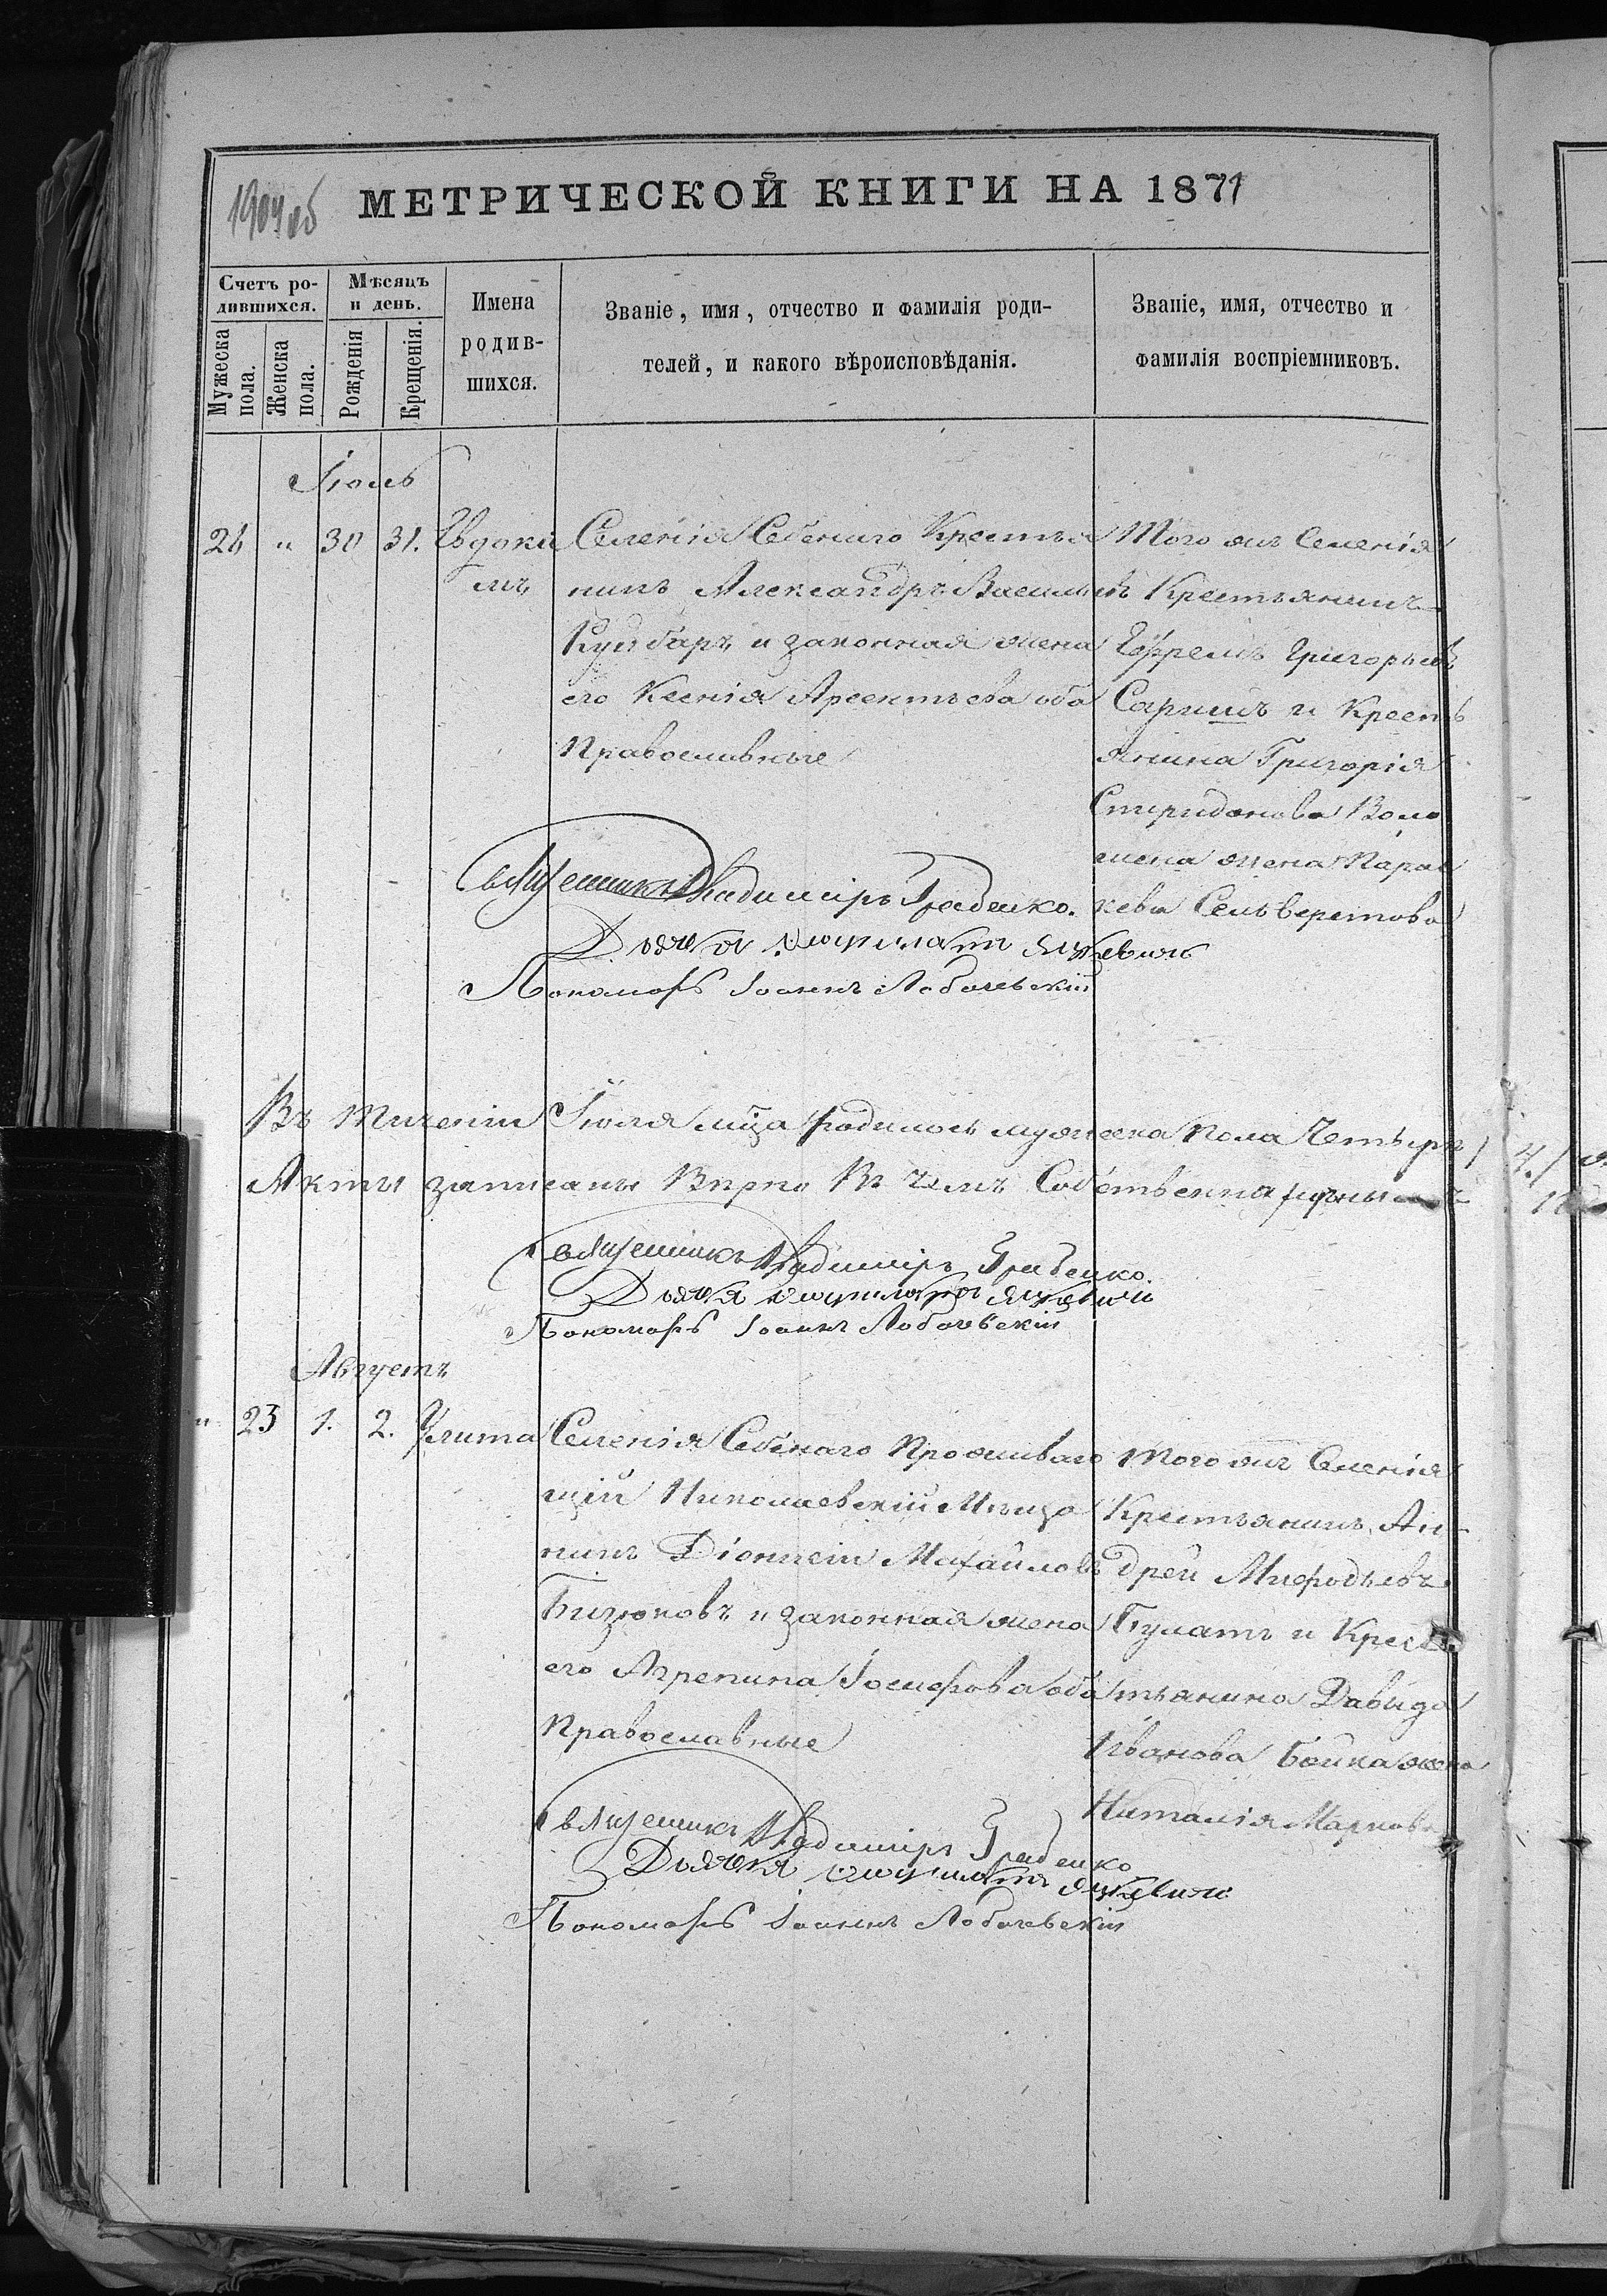 1904 об
МЕТРИЧЕСКОЙ КНИГИ НА 1871
Счетъ ро-
дившихся.
Мѣсяцъ
и день.
Мужеска
пола.
Женска
пола.
Рожденія
Крещенія.
Имена
родив-
шихся.
Званіе, имя, отчество и фамилія роди-
телей, и какого вѣроисповѣданія.
Званіе, имя, отчество и
фамилія воспріемниковъ.
Іюль
24 " 30 31. Евдоки
мъ
Селенія Себенаго Крестья
нинъ Александръ Васильевъ
и законная жена
его Ксенія Арсентьева оба
Православные
Того жъ Селенія
Крестьянинъ
Ефремъ Григорьевъ
и Кресть
янина Григорія
Спиридонова Воло
шена жена Парас
кева Сельверстова
Священникъ Владиміръ Гребенко.
Дьячекъ
Пономарь Іоаннъ Лобачевскій
Въ Теченіи Іюля мца родилось мужеска пола Четыре
Акты записаны Вѣрно Въ чемъ Собственноручнымъ
Священникъ Владиміръ Гребенко.
Дьячекъ
Пономарь Іоаннъ Лобачевскій
Августъ
" 23 1. 2. Улита
Селенія Себенаго Проживаю
щій Николаевскій Мѣща
нинъ Діонисій Михайловъ
Бизюковъ и законная жена
его Агрепина Іосифова оба
Православные
Того жъ Селенія
Крестьянинъ Ан-
дрей Мефодьевъ
Булатъ и Крес
тьянина Давида
Иванова Бойка жена
Наталія Маркова
Священникъ Владиміръ Гребенко
Дьячекъ
Пономарь Іоаннъ Лобачевскій